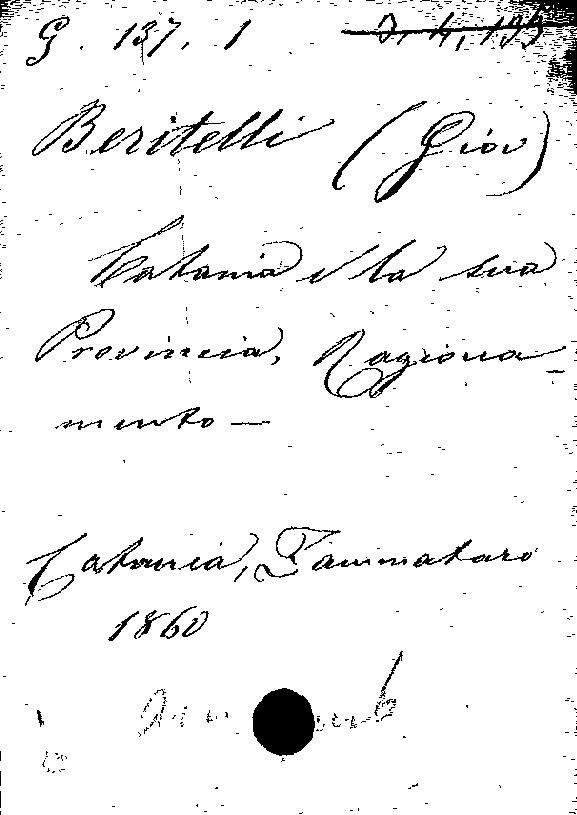 G. 137. 1 D. 4, 195
Beritelli (Giov)
Catania e la sua
Provincia, Ragiona-
mento —
Catania, Tammataro
1860